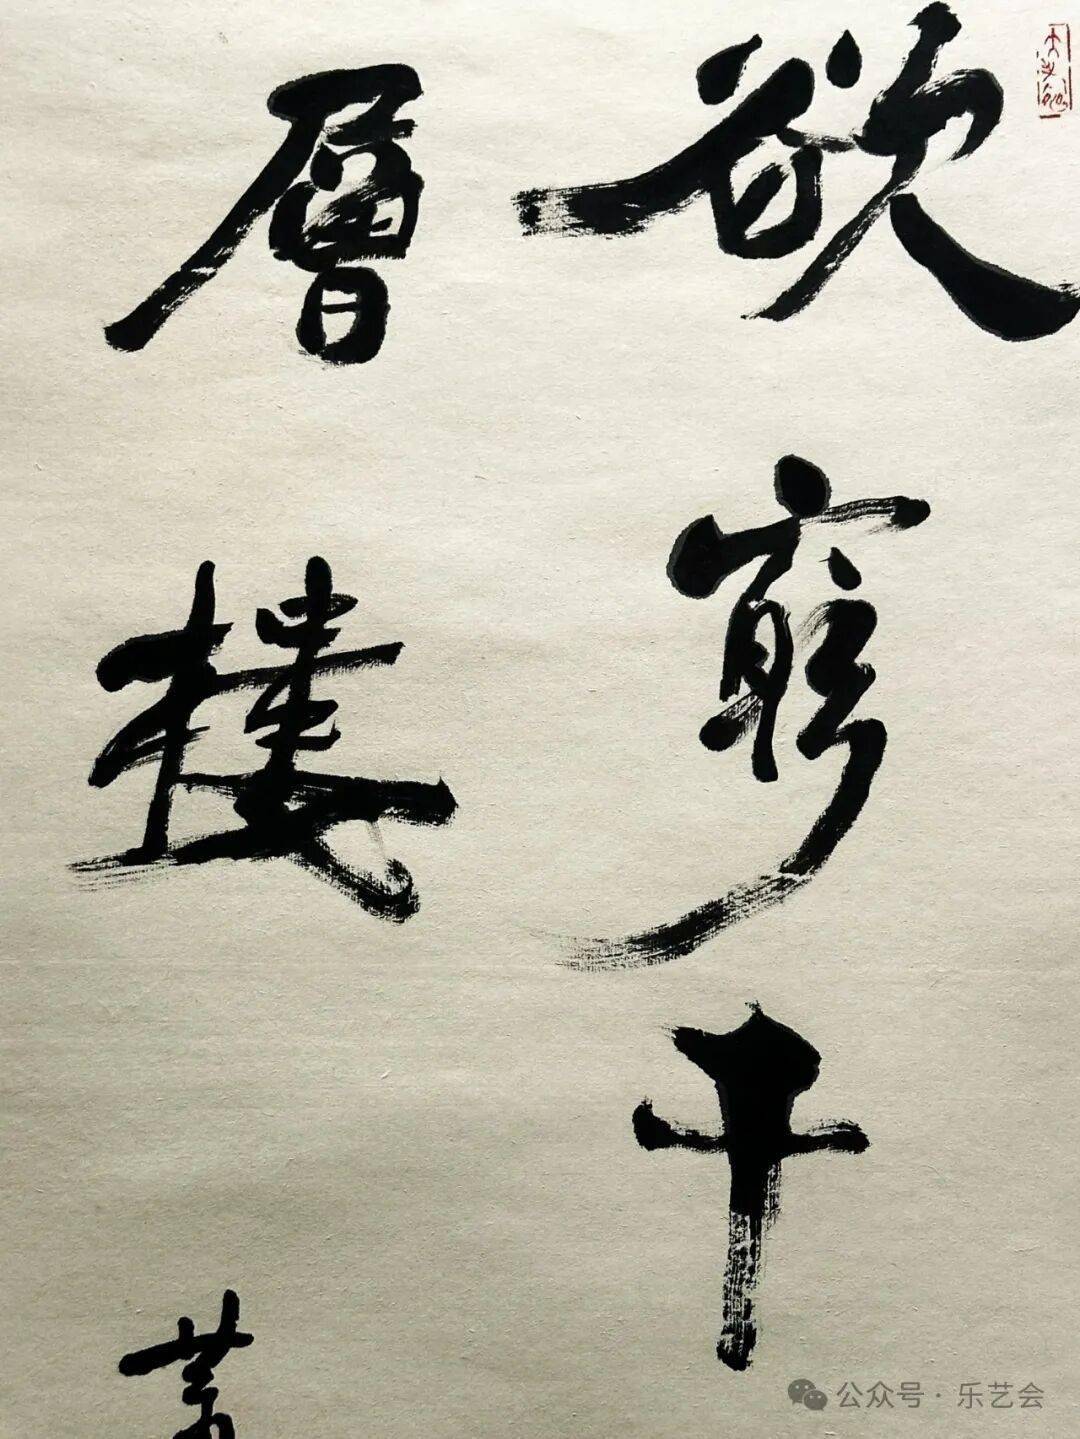 欲窮千
層楼
公众号·乐艺会